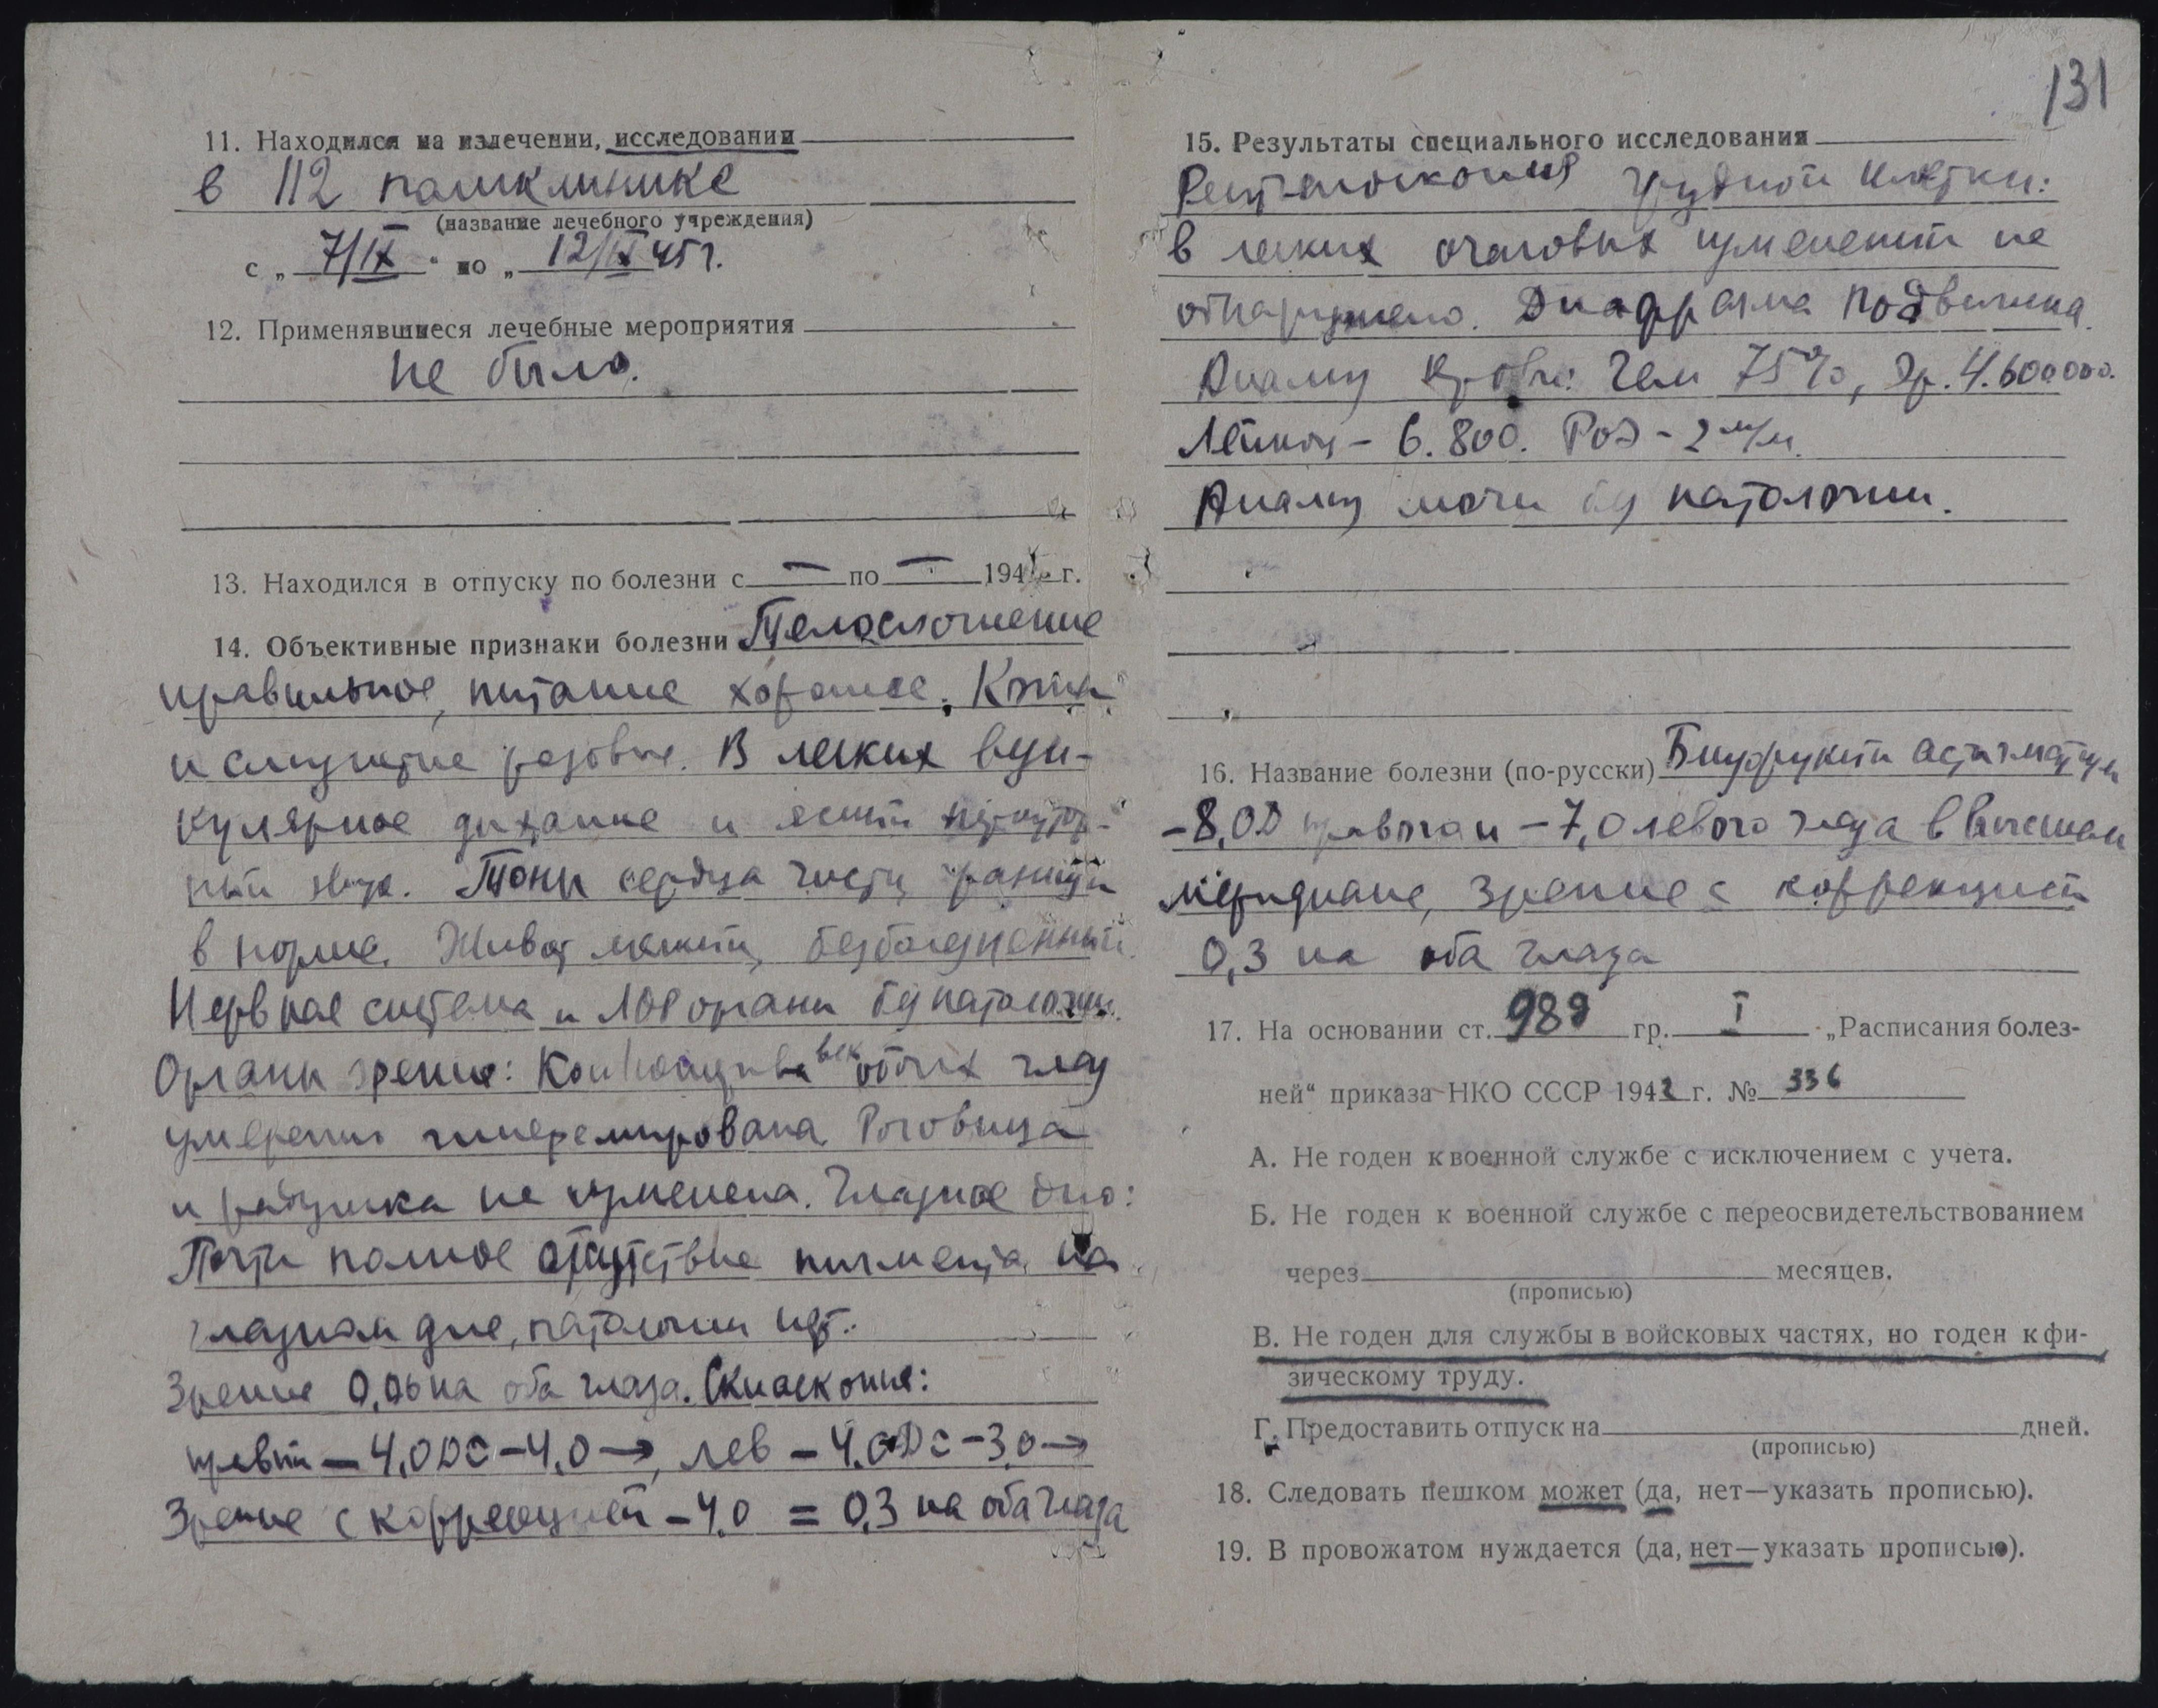 131
11. Находился на излечении, исследовании
в 112 поликлинике
(название лечебного учреждения)
с „ 7/IX “ по „ 12/IX 45 г.
12. Применявшиеся лечебные мероприятия
не было.
13. Находился в отпуску по болезни с — по — 194 г.
14. Объективные признаки болезни Телосложение
правильное, питание хорошее. Кожа
и слизистые розовые. В легких вези-
кулярное дыхание и ясный перкутор-
ный звук. Тоны сердца чисты, границы
в норме. Живот мягкий, безболезненный.
Нервная система и ЛОР органы без патологии.
Органы зрения: Конъюнктива век обоих глаз
умеренно гиперемирована. Роговица
и радужка не изменена. Глазное дно:
Почти полное отсутствие пигмента на
глазном дне, патологии нет.
Зрение 0,06 на оба глаза. Скиаскопия:
правый — 4,0 D C — 4,0 →, лев — 4,0 D C — 3,0 →
Зрение с коррекцией — 4,0 = 0,3 на оба глаза
15. Результаты специального исследования
Рентгеноскопия грудной клетки:
в легких очаговых изменений не
обнаружено. Диафрагма подвижна.
Анализ крови: Гем 75%, Эр. 4.600000.
Лейкоц – 6.800. РОЭ – 2 м/м.
Анализ мочи без патологии.
16. Название болезни (по-русски) Близорукий астигматизм
– 8,0 D правого и – 7,0 левого глаза в высшем
меридиане, зрение с коррекцией
0,3 на оба глаза
17. На основании ст. 98д гр. I „Расписания болез-
ней“ приказа НКО СССР 1942 г. № 336
А. Не годен к военной службе с исключением с учета.
Б. Не годен к военной службе с переосвидетельствованием
через месяцев.
(прописью)
В. Не годен для службы в войсковых частях, но годен к фи-
зическому труду.
Г. Предоставить отпуск на дней.
(прописью)
18. Следовать пешком может (да, нет—указать прописью).
19. В провожатом нуждается (да, нет—указать прописью).